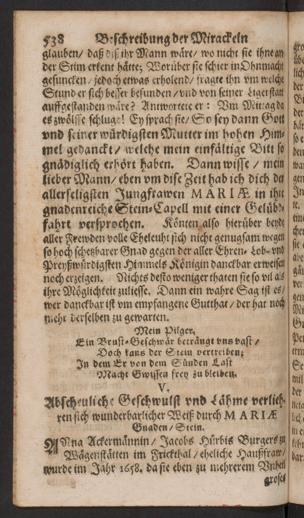 538 Beschreibung der Mirackeln
glauben / daß diß ihr Mann wäre / wo nicht sie ihne an
der Stim erkent hätte; Worüber sie schier in Ohnmacht
gesuncken / jedoch etwas erholend / fragte ihn um welche
Stund er sich besser befunden / und von seiner Ligerstatt
auffgestanden wäre? Antwortete er: Um Mittag da
es zwölffe schluge! Ey sprach sie / So sey dann Gott
und seiner würdigsten Mutter im hohen Him-
mel gedanckt / welche mein einfältige Bitt so
gnädiglich erhört haben. Dann wisse / mein
lieber Mann / eben um dise Zeit hab ich dich der
allerseligsten Jungfrawen MARIÆ in ihr
gnadenreiche Stein-Capell mit einer Gelübd-
fahrt versprochen. Könten also hierüber beyde
aller Frewden volle Eheleuht sich nicht genugsam wegen
so hoch schetzbarer Gnad gegen der aller Ehren- Lob- und
Preyßwürdigsten Himmels Königin danckbar erweisen
noch erzeigen. Nichts desto weniger thaten sie so vil als
ihre Möglichkeit zuliesse. Dann ein wahre Sag ist es /
wer danckbar ist um empfangene Gutthat / der hat noch
mehr derselben zu gewarten.
Mein Pilger,
Ein Brust-Geschwär betrangt uns vast /
Doch kans der Stein vertreiben;
In dem Er von dem Sünden Last
Macht Gwissen frey zu bleiben.
V.
Abscheuliche Geschwulst und Lähme verlieh-
ren sich wunderbarlicher Weiß durch MARIÆ
Gnaden / Stein.
ANna Ackermännin / Jacobs Hürbis Burgers zu
Wägenstätten im Frickthal / eheliche Haußfraw /
wurde im Jahr 1658. da sie eben zu mehrerem Unheil
groses